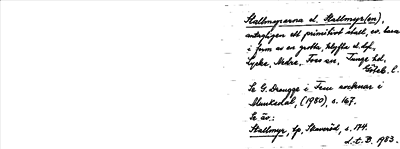 Stallmyrarna el. Stallmyr(en),
antagligen ett primitivt stall, ev. bara
i form av en grotta, klyfta el. dyl.,
Lycke, Nedre, Foss sn, Tunge hd,
Göteb. l.
Se G. Drougge i Fem socknar i
Munkedal, (1980), s. 167.
Se äv.:
Stallmyr, bg, Skaveröd, s. 174.
d:t. B. 1983.